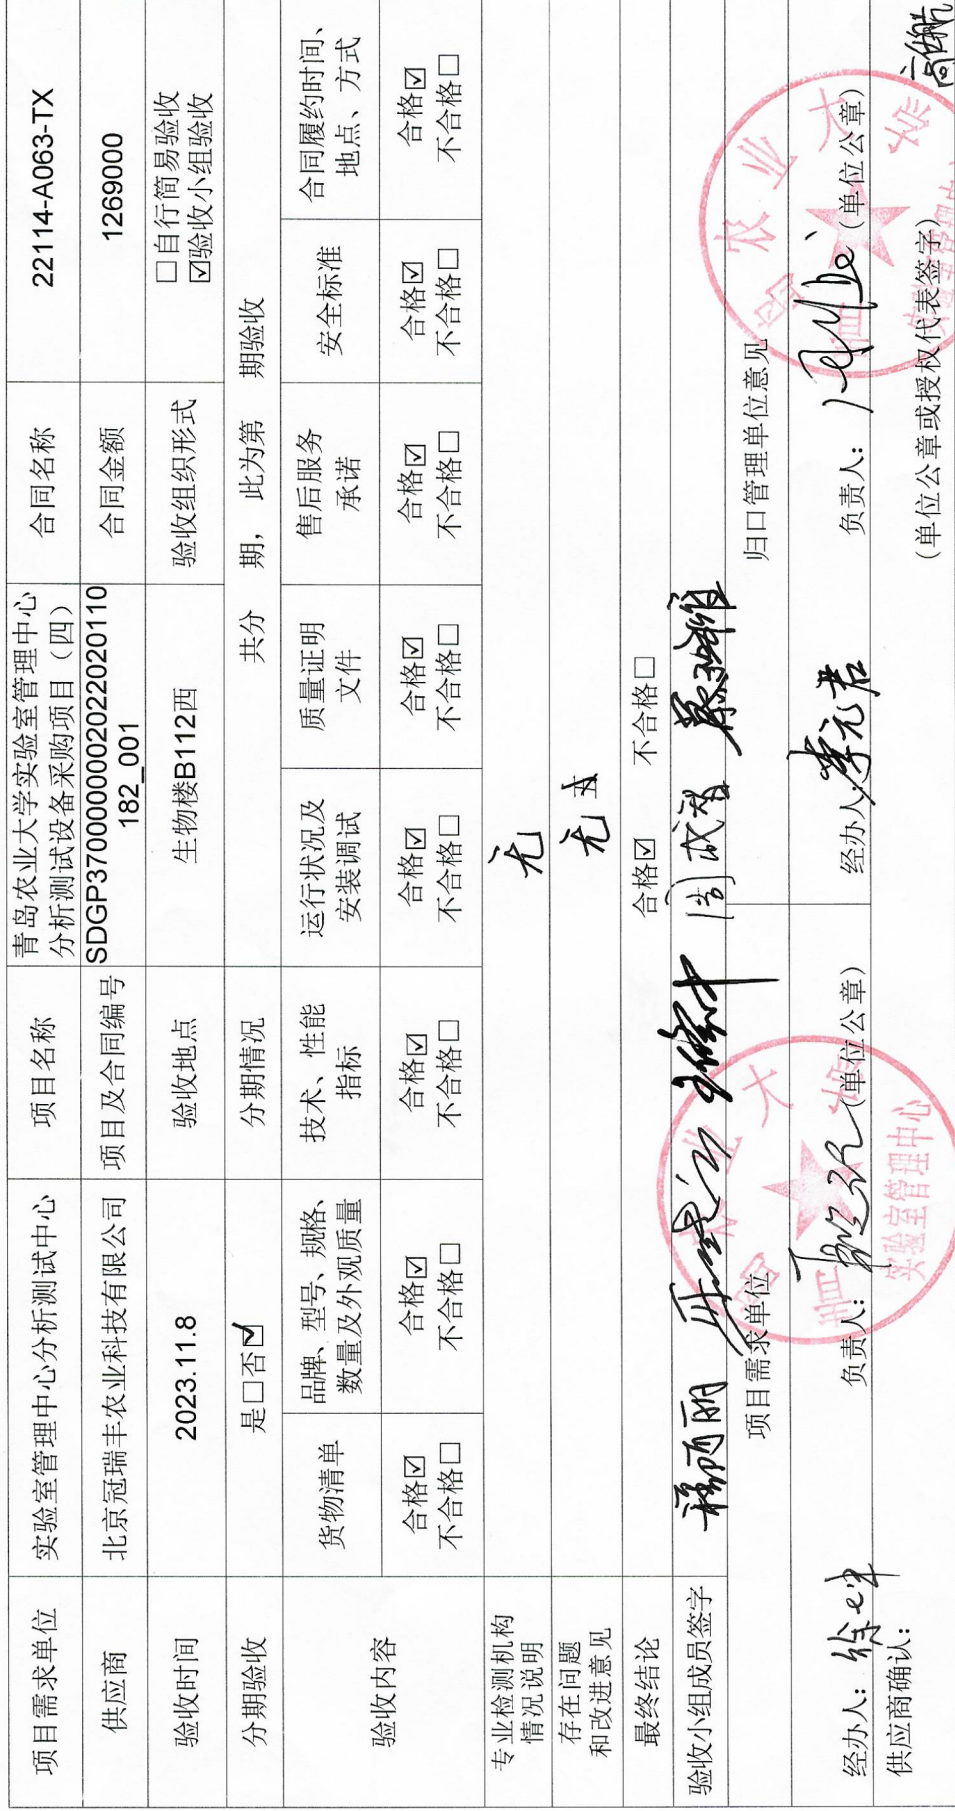 项目需求单位 实验室管理中心分析测试中心 项目名称 青岛农业大学实验室管理中心
分析测试设备采购项目（四） 合同名称 22114-A063-TX
供应商 北京冠瑞丰农业科技有限公司 项目及合同编号 SDGP370000000202202020110
182_001 合同金额 1269000
验收时间 2023.11.8 验收地点 生物楼B112西 验收组织形式 □自行简易验收
☑验收小组验收
分期验收 是□否☑ 分期情况 共分 期，此为第 期验收
验收内容
货物清单
品牌、型号、规格、
数量及外观质量
技术、性能
指标
运行状况及
安装调试
质量证明
文件
售后服务
承诺
安全标准
合同履约时间、
地点、方式
合格☑ 合格☑ 合格☑ 合格☑ 合格☑ 合格☑ 合格☑ 合格☑
不合格□ 不合格□ 不合格□ 不合格□ 不合格□ 不合格□ 不合格□ 不合格□
专业检测机构
情况说明
无
存在问题
和改进意见
无
最终结论 合格☑ 不合格□
验收小组成员签字
项目需求单位 归口管理单位意见
负责人： （单位公章） 负责人： （单位公章）
经办人： 经办人： 李元君
供应商确认： （单位公章或授权代表签字）
青岛农业大学
实验室管理中心
青岛农业大学